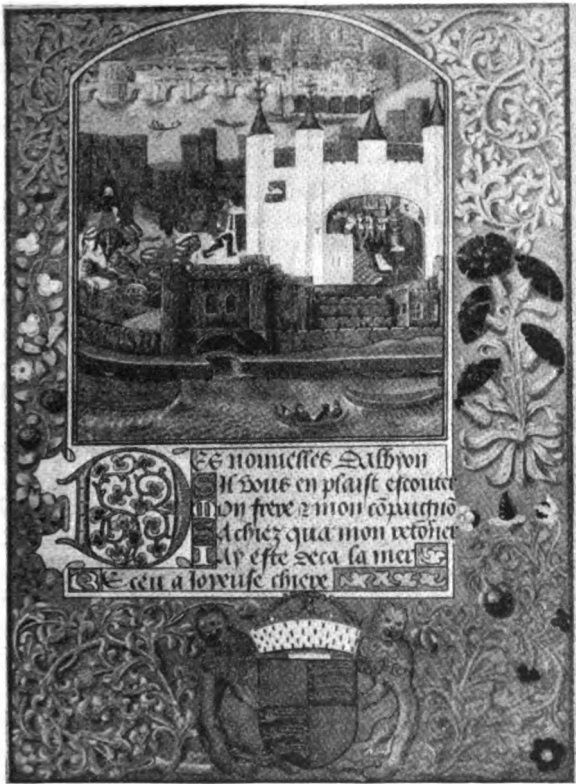 DEs nouuelles Dalbyon
SIl vous en plaist escouter
Mon frere ⁊ mon cõpaignõ
Sachiez qua mon retorner
Iay este deca la mer
REceu a Joyeuse chiere